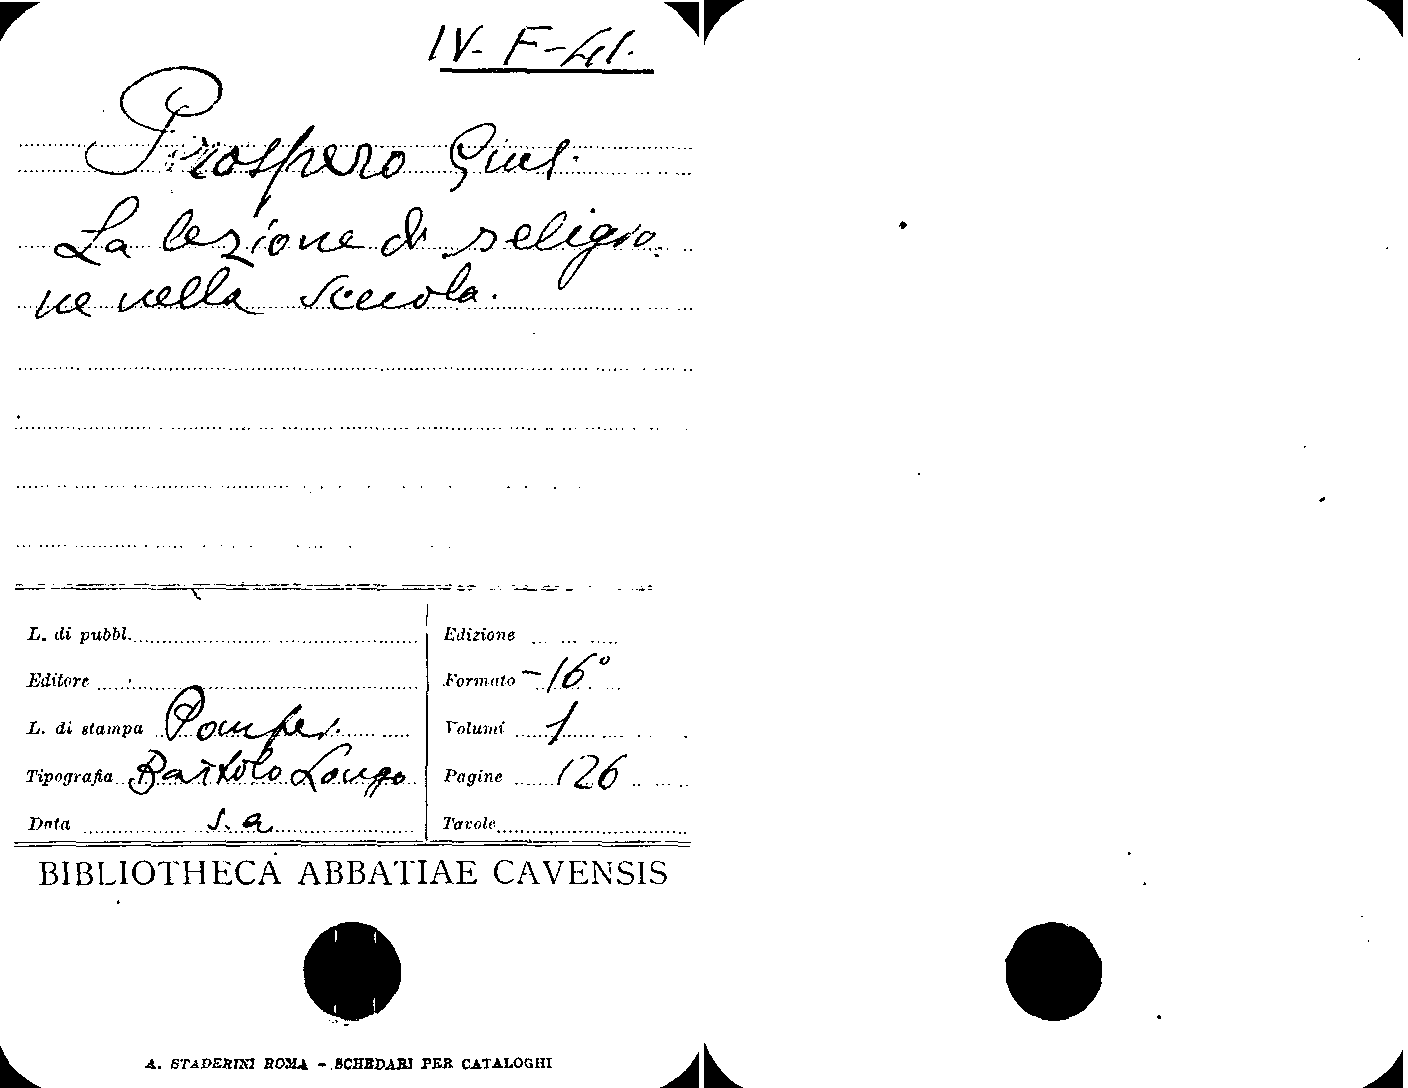 IV-F-41.
Prospero Gius.
La lezione di religio-
ne nella scuola.
L. di pubbl.
Edizione
Editore
Formato -16°
L. di stampa Pompei.
Volumi 1
Tipografia Bartolo Longo
Pagine 126
Data s.a.
Tavole
BIBLIOTHECA ABBATIAE CAVENSIS
A. STADERINI ROMA - SCHEDARI PER CATALOGHI